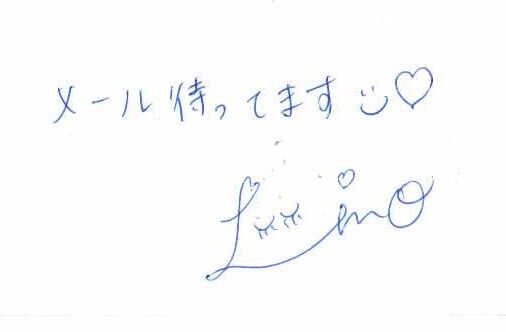 メール待ってます☺♡